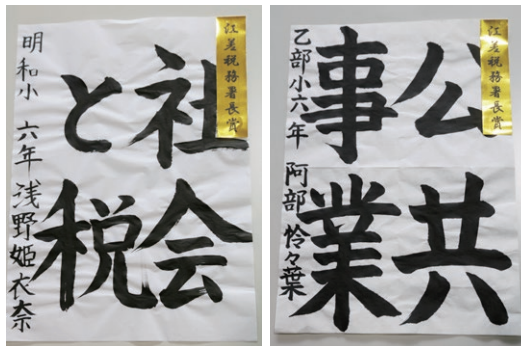 江差税務署長賞
社会
と税
明和小 六年 浅野姫衣奈
江差税務署長賞
公共
事業
乙部小六年 阿部怜々葉